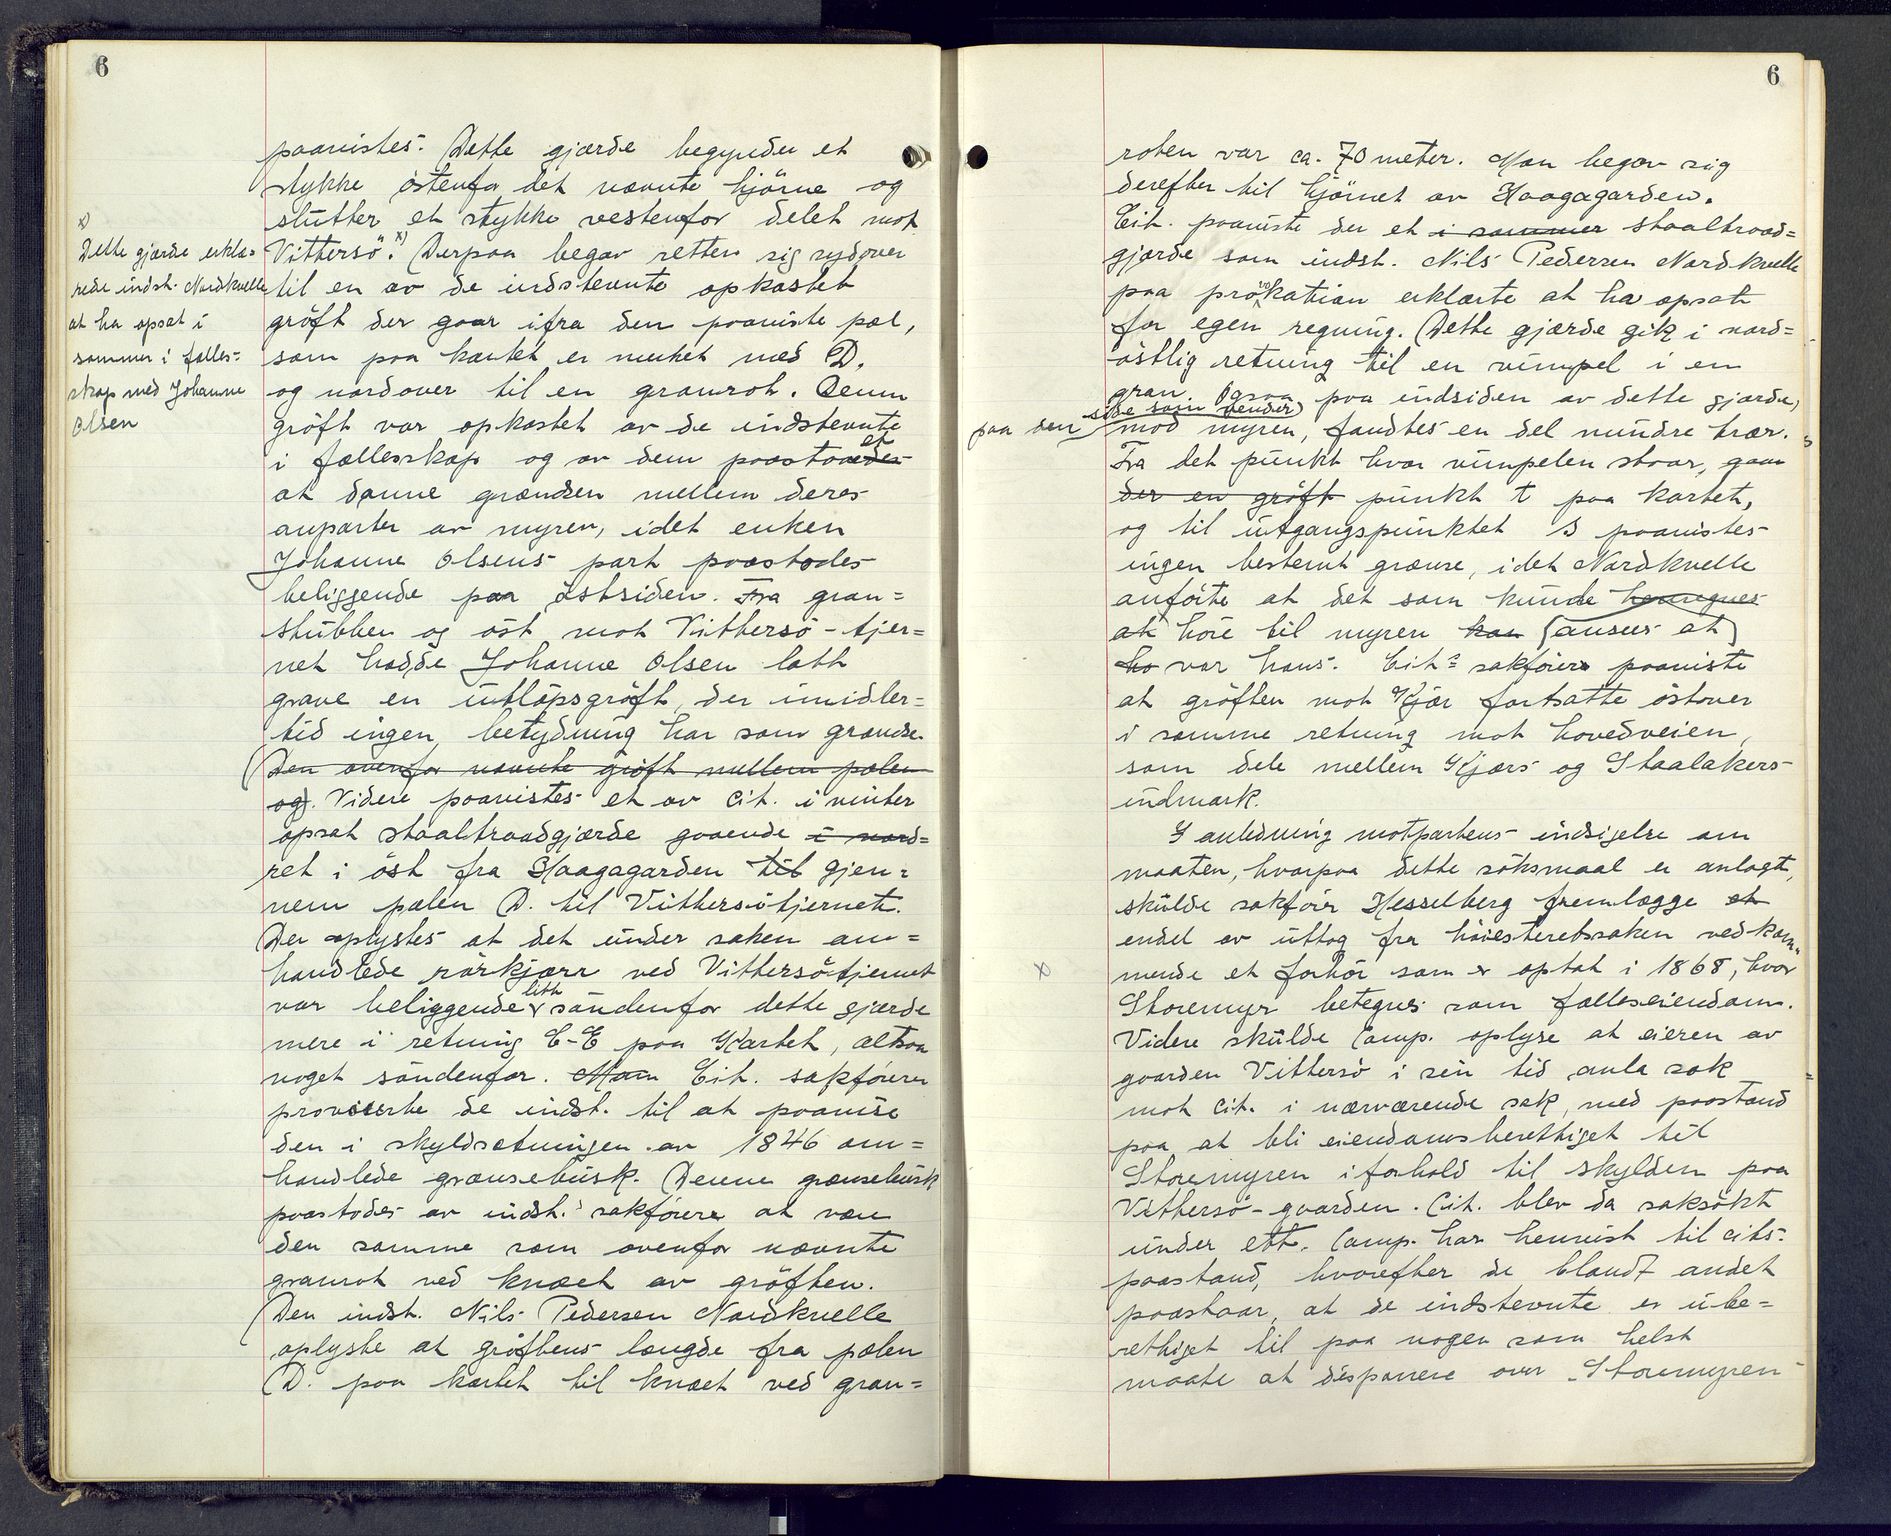 6
paavistes. Dette gjærde begynder et
stykke østenfor det nævnte hjørne og
slutter et stykke vestenfor delet mot
Vittersø. x) Derpaa begav retten sig sydover
til en av de indstevnte opkastet
grøft der gaar ifra den paaviste pæl,
som paa kartet er merket med D.
og nordover til en granrot. Denne
grøft var opkastet av de indstevnte
i fællesskap og av dem paastaaedes et
at danne grændsen mellem deres
anparter av myren, idet enken
Johanne Olsens part paastodes
beliggende paa østsiden. Fra gran=
stubben og øst mot Vittersø-tjer=
net hadde Johanne Olsen latt
grave en utløpsgrøft, der imidler=
tid ingen betydning har som grændse.
(Den ovenfor nævnte grøft mellem pælen
og). Videre paavistes et av Cit. i vinter
opsat staaltraadgjærde gaaende i nord=
ret i øst fra Haagagarden til gjen=
nem pælen D. til Vittersøtjernet.
Der oplystes at det under saken om=
handlede rørkjærr ved Vittersøtjernet
var beliggende litt søndenfor dette gjærde
mere i retning C-E paa Kartet, altsaa
noget søndenfor. Man Cit. sakfører
provoserte de indst. til at paavise
den i skyldsetningen av 1846 om=
handlede grænsebusk. Denne grænsebusk
paastodes av indst.s sakfører at være
den samme som ovenfor nævnte
granrot ved knæet av grøften.
Den indst. Nils Pedersen Nordkvelle
oplyste at grøftens længde fra pælen
D. paa kartet til knæet ved gran=
x)
Dette gjærde erklæ=
rede indst. Nordkvelle
at ha opsat i
sommer i fælles=
skap med Johanne
Olsen
6
roten var ca. 70 meter. Man begav sig
derefter til hjørnet av Haagagarden.
Cit. paaviste der et i sommer staaltraad=
gjærde som indst. Nils Pedersen Nordkvelle
paa provokation erklærte at ha opsat
for egen regning. Dette gjærde gik i nord=
østlig retning til en vimpel i en
gran. Ogsaa paa indsiden av dette gjærde,
paa den side som vender
mod myren, fandtes en del mindre trær.
Fra det punkt hvor vimpelen staar, gaar
der en grøft punkt t paa kartet,
og til utgangspunktet S paavistes
ingen bestemt grænse, idet Nordkvelle
anførte at det som kunde henregnes
at høre til myren han (ansees at)
ho var hans. Cit.s sakfører paaviste
at grøften mot Kjær fortsatte østover
i samme retning mot hovedveien,
som dele mellem Kjærs og Staalakers
indmark.
I anledning motpartens indsigelse om
maaten, hvorpaa dette søksmaal er anlagt,
skulde sakfører Hesselberg fremlægge et
endel av uttog fra høiesteretssaken vedkom=
x
mende et forhør som er optat i 1868, hvor
Storemyr betegnes som fælleseiendom.
Videre skulde Comp. oplyse at eieren av
gaarden Vittersø i sin tid anla sak
mot Cit. i nærværende sak, med paastand
paa at bli eiendomsberettiget til
Storemyren i forhold til skylden paa
Vittersø-gaarden. Cit. blev da saksøkt
under ett. Comp. har henvist til cits.
paastand, hvorefter de blandt andet
paastaar, at de indstevnte er ube=
rettiget til paa nogen som helst
maate at disponere over "Storemyren"